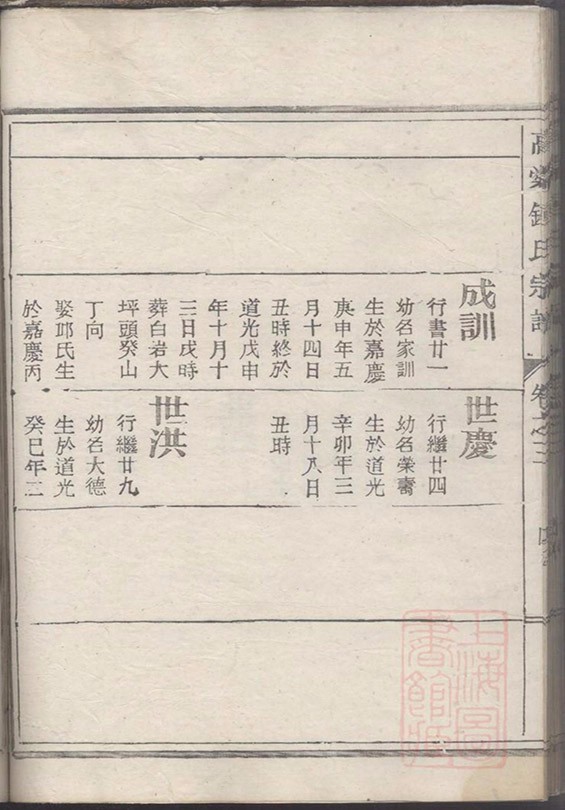 鍾氏宗譜
卷之三
成訓
行書廿一
幼名家訓
生於嘉慶
庚申年五
月十四日
丑時終於
道光戊申
年十月十
三日戌時
葬白岩大
坪頭癸山
丁向
娶邱氏生
於嘉慶丙
世慶
行繼廿四
幼名榮壽
生於道光
辛卯年三
月十八日
丑時
世洪
行繼廿九
幼名大德
生於道光
癸巳年二
上海圖
書館藏